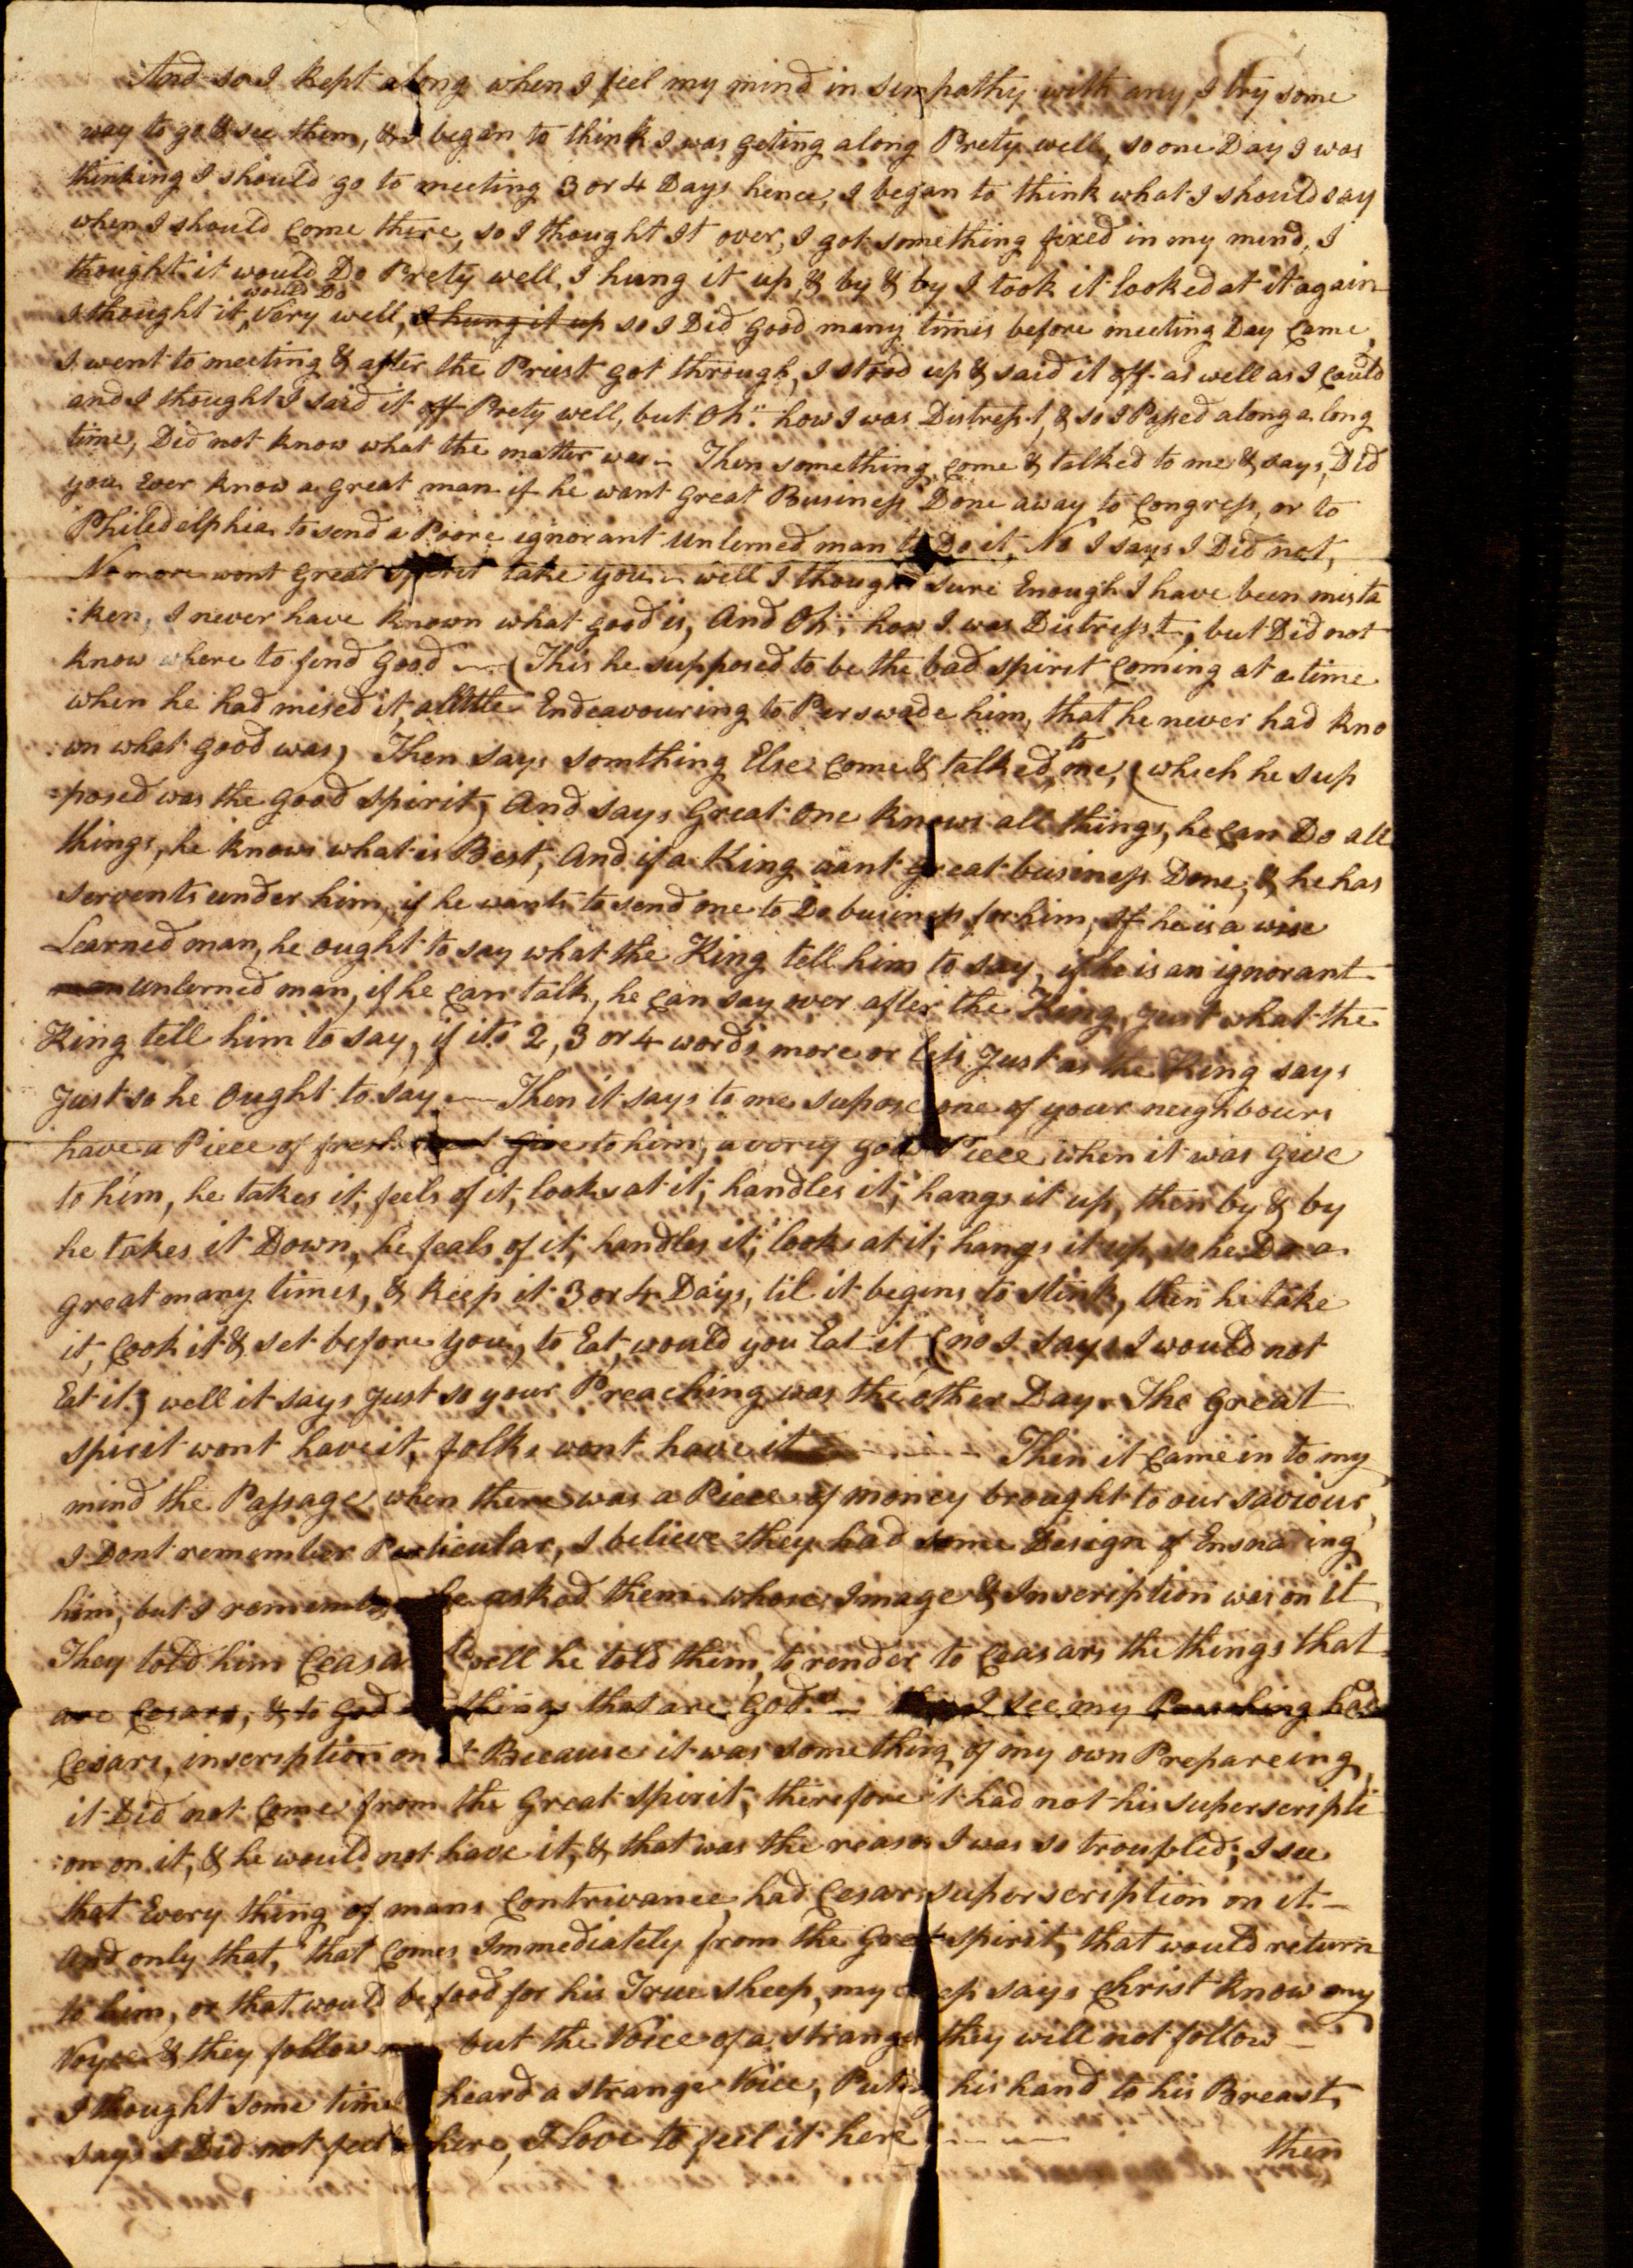 And so I kept along when I feel my mind in simpathy with any, I try some
way to go & see them, & I began to think I was geting along Prety well, so one Day I was
thinking I should go to meeting 3 or 4 Days hence, I began to think what I should say
when I should come there, so I thought It over, I got something fixed in my mind, I
thought it would Do Prety well, I hung it up, & by & by I took it looked at it again
I thought it would Do Very well, I hung it up so I Did good many times before meeting Day Came,
I went to meeting & after the Priest got through, I stood up & said it off as well as I could
and I thought I said it off Prety well, but Oh" how I was Distrest, & so I Passed along a long
time, Did not know what the matter was — Then something come & talked to me & says, Did
you Ever know a great man if he want great Business Done away to Congress, or to
Philedelphia to send a Poore ignorant unlerned man to Do it, No I says I Did not,
No more wont great spirit take you — well I thought sure Enough I have been mista
:ken, I never have known what good is, And Oh, how I was Distresst, but Did not
know where to find good — (This he supposed to be the bad spirit coming at a time
when he had mised it, alittle Endeavouring to Perswade him, that he never had kno
:wn what good was) Then says somthing Else come & talked to me, (which he sup
:posed was the good spirit) And says Great One knows all things, he can Do all
things, he knows what is Best, And if a King want great business Done, & he has
servents under him, if he wants to send one to Do business for him, If he is a wise
Learned man, he ought to say what the King tell him to say, if he is an ignorant
man unlerned man, if he can talk, he can say over after the King, Just what the
King tell him to say, if its 2, 3 or 4 words more or less Just as the King says
Just so he Ought to say — Then it says to me supose one of your neighbours
have a Piece of fresh meat give to him, a very good Piece when it was give
to him, he takes it, feels of it, looks at it, handles it, hangs it up, then by & by
he takes it Down, he feals of it, handles it, looks at it, hangs it up, so he Do a
great many times, & keep it 3 or 4 Days, til it begins to stink, then he take
it, Cook it & set before you, to Eat, would you Eat it (no I says I would not
Eat it) well it says Just so your Preaching was the other Day. The great
spirit wont have it, folks wont have it — Then it came in to my
mind the Passage, when there was a Piece of money brought to our saviour,
I Dont remember Perticular, I believe they had some Design of Ensnaring
him, but I remember he asked them whose Image & Inscription was on it
They told him Ceasar well he told them, to render to Ceasars the things that
are Cesars, & to God things that are God's — I see my Preaching had
Cesars, inscription on it Because it was something of my own Prepareing,
it Did not Come from the Great Spirit, therefore it had not his superscripti
:on on it, & he would not have it, & that was the reason I was so troubled; I see
that Every thing of mans Contrivance, had Cesars superscription on it —
And only that, that Comes Immediately from the Great spirit, that would return
to him, or that would be food for his True sheep, my sheep says Christ know my
Voyce & they follow me but the Voice of a stranger they will not follow —
I thought some time I heard a strange Voice, Puting his hand to his Breast,
says I Did not feel it here, I love to feel it here —
then